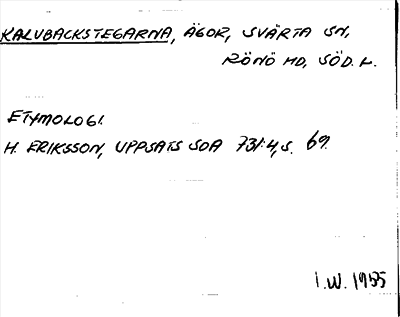 KALVBACKSTEGARNA, ÄGOR, SVÄRTA SN,
RÖNÖ HD, SÖD. L.
ETYMOLOGI.
H. ERIKSSON, UPPSATS SOA 731:4, S. 69.
I.W. 1955